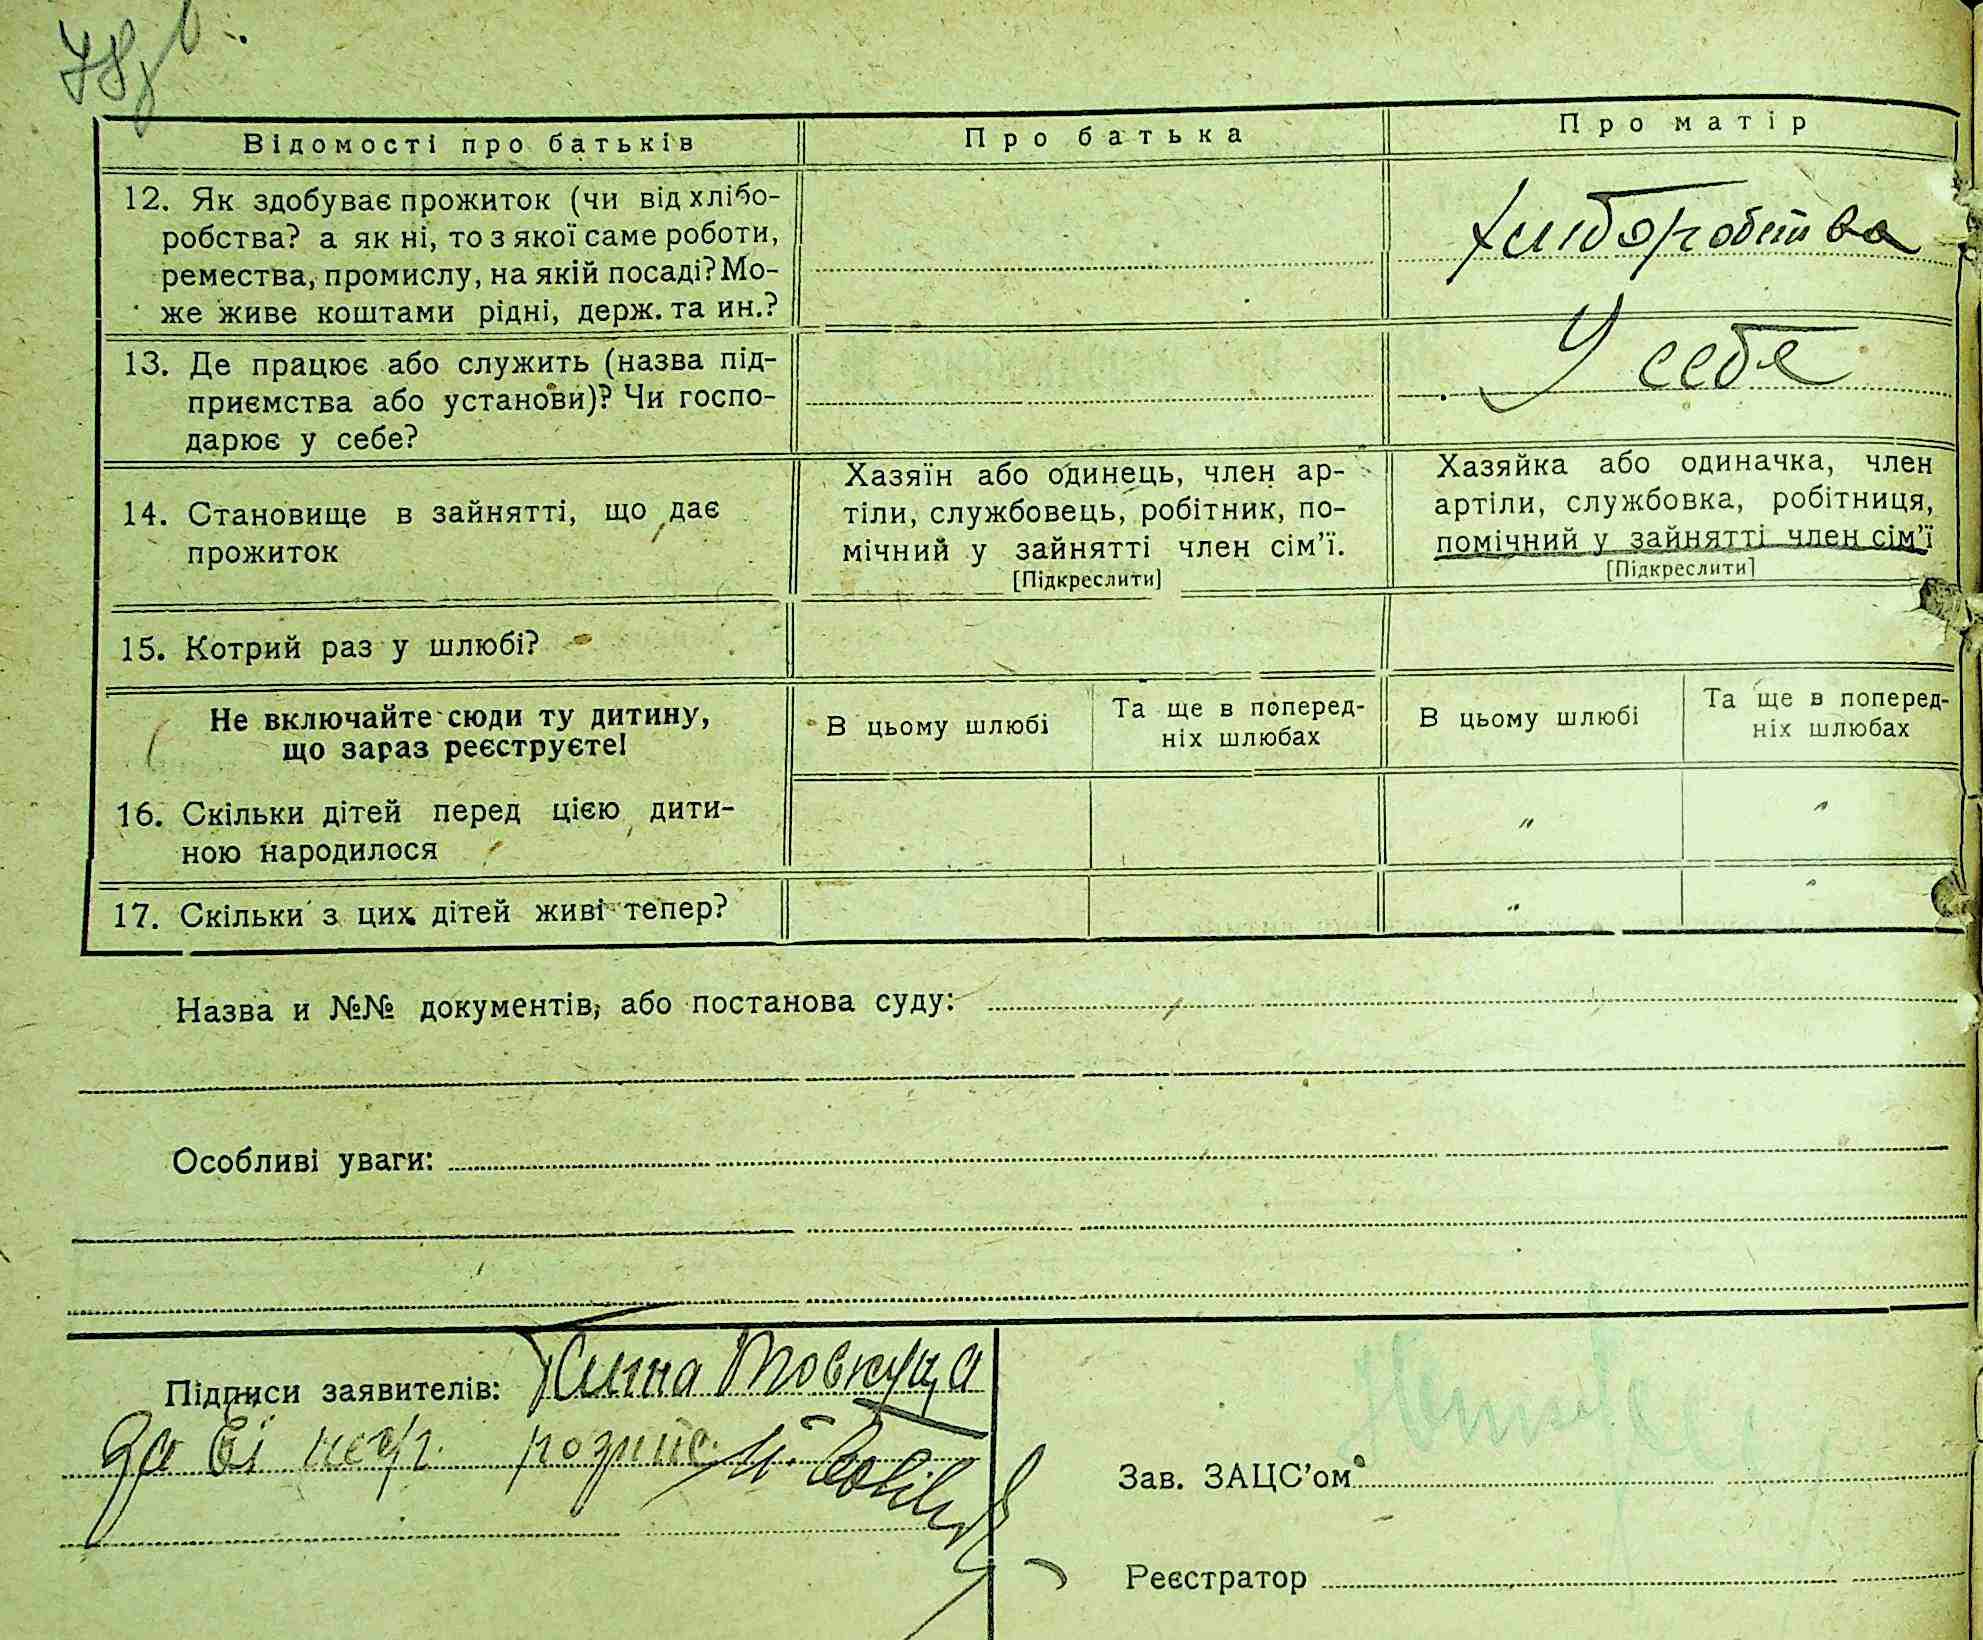 Відомості про батьків
Про батька
Про матір
12. Як здобуває прожиток (чи від хлібо-
робства? а як ні, то з якої саме роботи,
ремества, промислу, на якій посаді? Мо-
же живе коштами рідні, держ. та ин.?
Хлиборобства
13. Де працює або служить (назва під-
приємства або установи)? Чи госпо-
дарює у себе?
У себе
14. Становище в зайнятті, що дає
прожиток
Хазяїн або одинець, член ар-
тіли, службовець, робітник, по-
мічний у зайнятті член сім'ї.
[Підкреслити]
Хазяйка або одиначка, член
артіли, службовка, робітниця,
помічний у зайнятті член сім'ї
[Підкреслити]
15. Котрий раз у шлюбі?
Не включайте сюди ту дитину,
що зараз реєструєте!
В цьому шлюбі
Та ще в поперед-
ніх шлюбах
В цьому шлюбі
Та ще в поперед-
ніх шлюбах
16. Скільки дітей перед цією дити-
ною народилося
" "
17. Скільки з цих дітей живі тепер?
" "
Назва и №№ документів, або постанова суду:
Особливі уваги:
Підписи заявителів: Ганна Товкуца
За её негр. розпис.
Зав. ЗАЦС'ом
Реєстратор